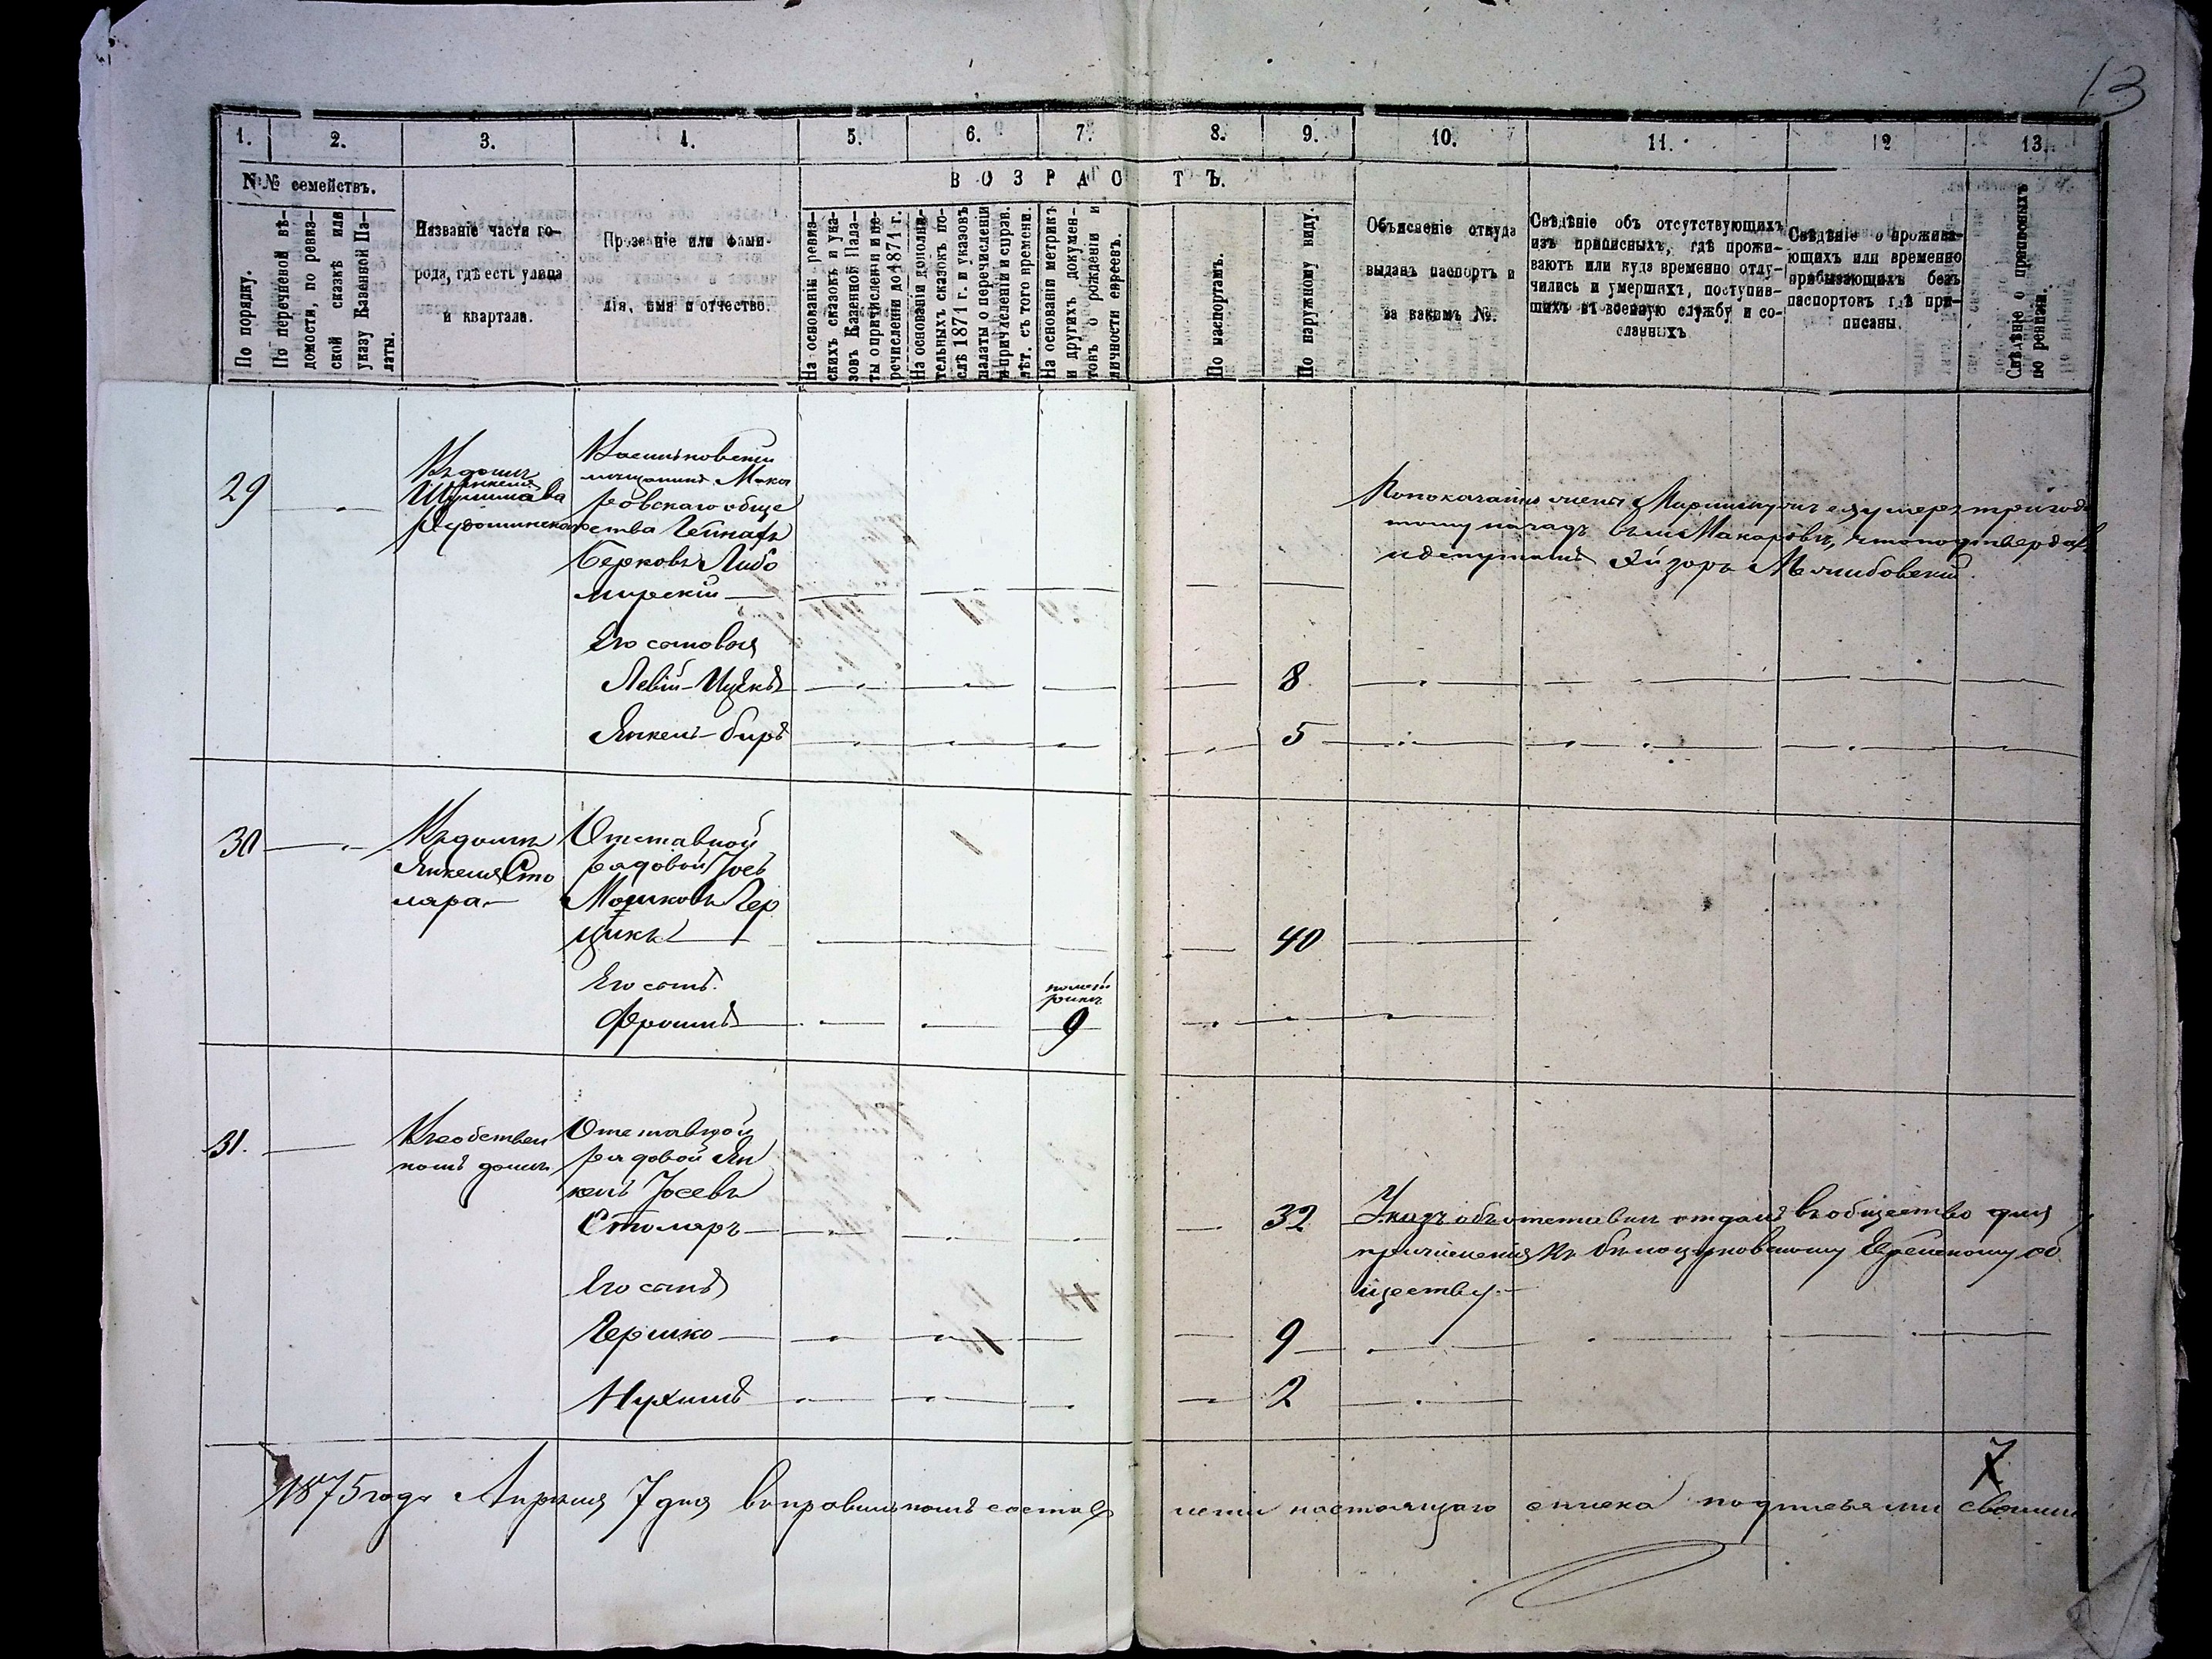 13
1. 2. 3. 4. 5. 6. 7. 8. 9. 10. 11. 12 13.
№№ семействъ.
ВОЗРАСТЪ.
По порядку.
По перечневой вѣ-
домости, по ревиз-
ской сказкѣ или
указу Казенной Па-
латы.
Названіе части го-
рода, гдѣ есть улица
и квартала.
Прозваніе или фами-
лія, имя и отчество.
На основаніи ревиз-
скихъ сказокъ и ука-
зовъ Казенной Пала-
ты о причисленіи и пе-
речисленіи до 1871 г.
На основаніи дополни-
тельныхъ сказокъ по-
слѣ 1871 г. и указовъ
палаты о перечисленіи
и причисленіи и справ.
лѣт. съ того времени.
На основаніи метрикъ
и другихъ докумен-
товъ о рожденіи и
личности евреевъ.
По паспортамъ.
По наружному виду.
Объясненіе откуда
выданъ паспортъ и
за какимъ №.
Свѣдѣніе объ отсутствующихъ
изъ приписныхъ, гдѣ прожи-
ваютъ или куда временно отлу-
чились и умершихъ, поступив-
шихъ въ военную службу и со-
сланныхъ
Свѣдѣніе о прожива-
ющихъ или временно
прибывающихъ безъ
паспортовъ гдѣ при-
писаны.
Свѣдѣніе о
по ревизіи.
29
Въ домѣ
Янкеля
Васильковскій
мѣщанинъ Мака
ровскаго обще
ства
Берковъ Любо
мирскій
По показанію жены мужъ ея умеръ три года
тому назадъ въ м. Макаровѣ, что подтвердилъ
и депутатъ
Его сыновья
Левій-Ицекъ 8
Янкель-беръ 5
30
Въ домѣ
Янкеля Сто
ляра
Отставной
рядовой Іось
Мошковъ Гер
цикъ 40
Его сынъ
по мет
рикѣ
Фроимъ 9
31.
Въ собствен
номъ домѣ
Отставной
рядовой Ян
кель Іосевъ
Столяръ 32
Указъ объ отставкѣ отданъ въ общество для
причисленія къ бѣлоцерковскому Еврейскому об
ществу.
Его сынъ
Гершко 9
Нухимъ 2
7
1875 года Апрѣля 7 дня въ правильномъ состав леніи настоящаго списка подписями своими